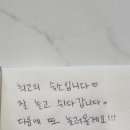 최고의 숙소입니다♡
잘 놀고 쉬다갑니다
다음에 또 놀러올게요!!!